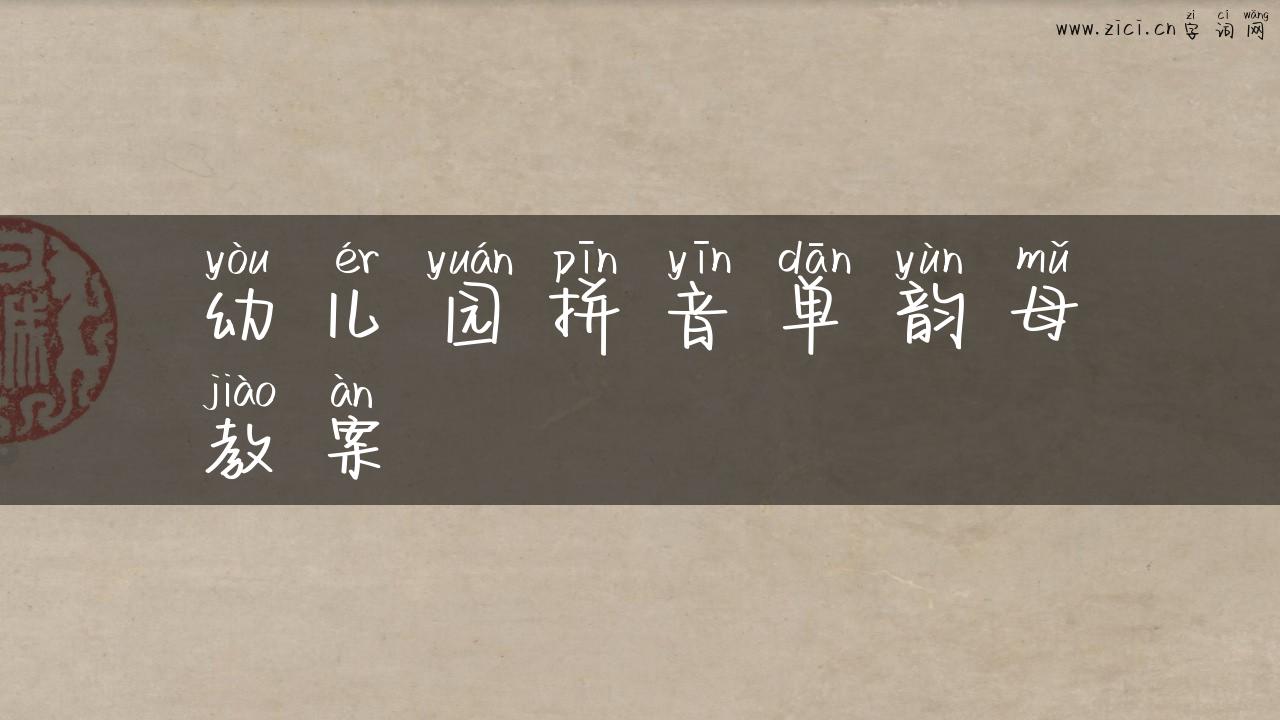 zì cí wǎng
www.zici.cn 字 词 网
yòu ér yuán pīn yīn dān yùn mǔ
幼 儿 园 拼 音 单 韵 母
jiào àn
教 案